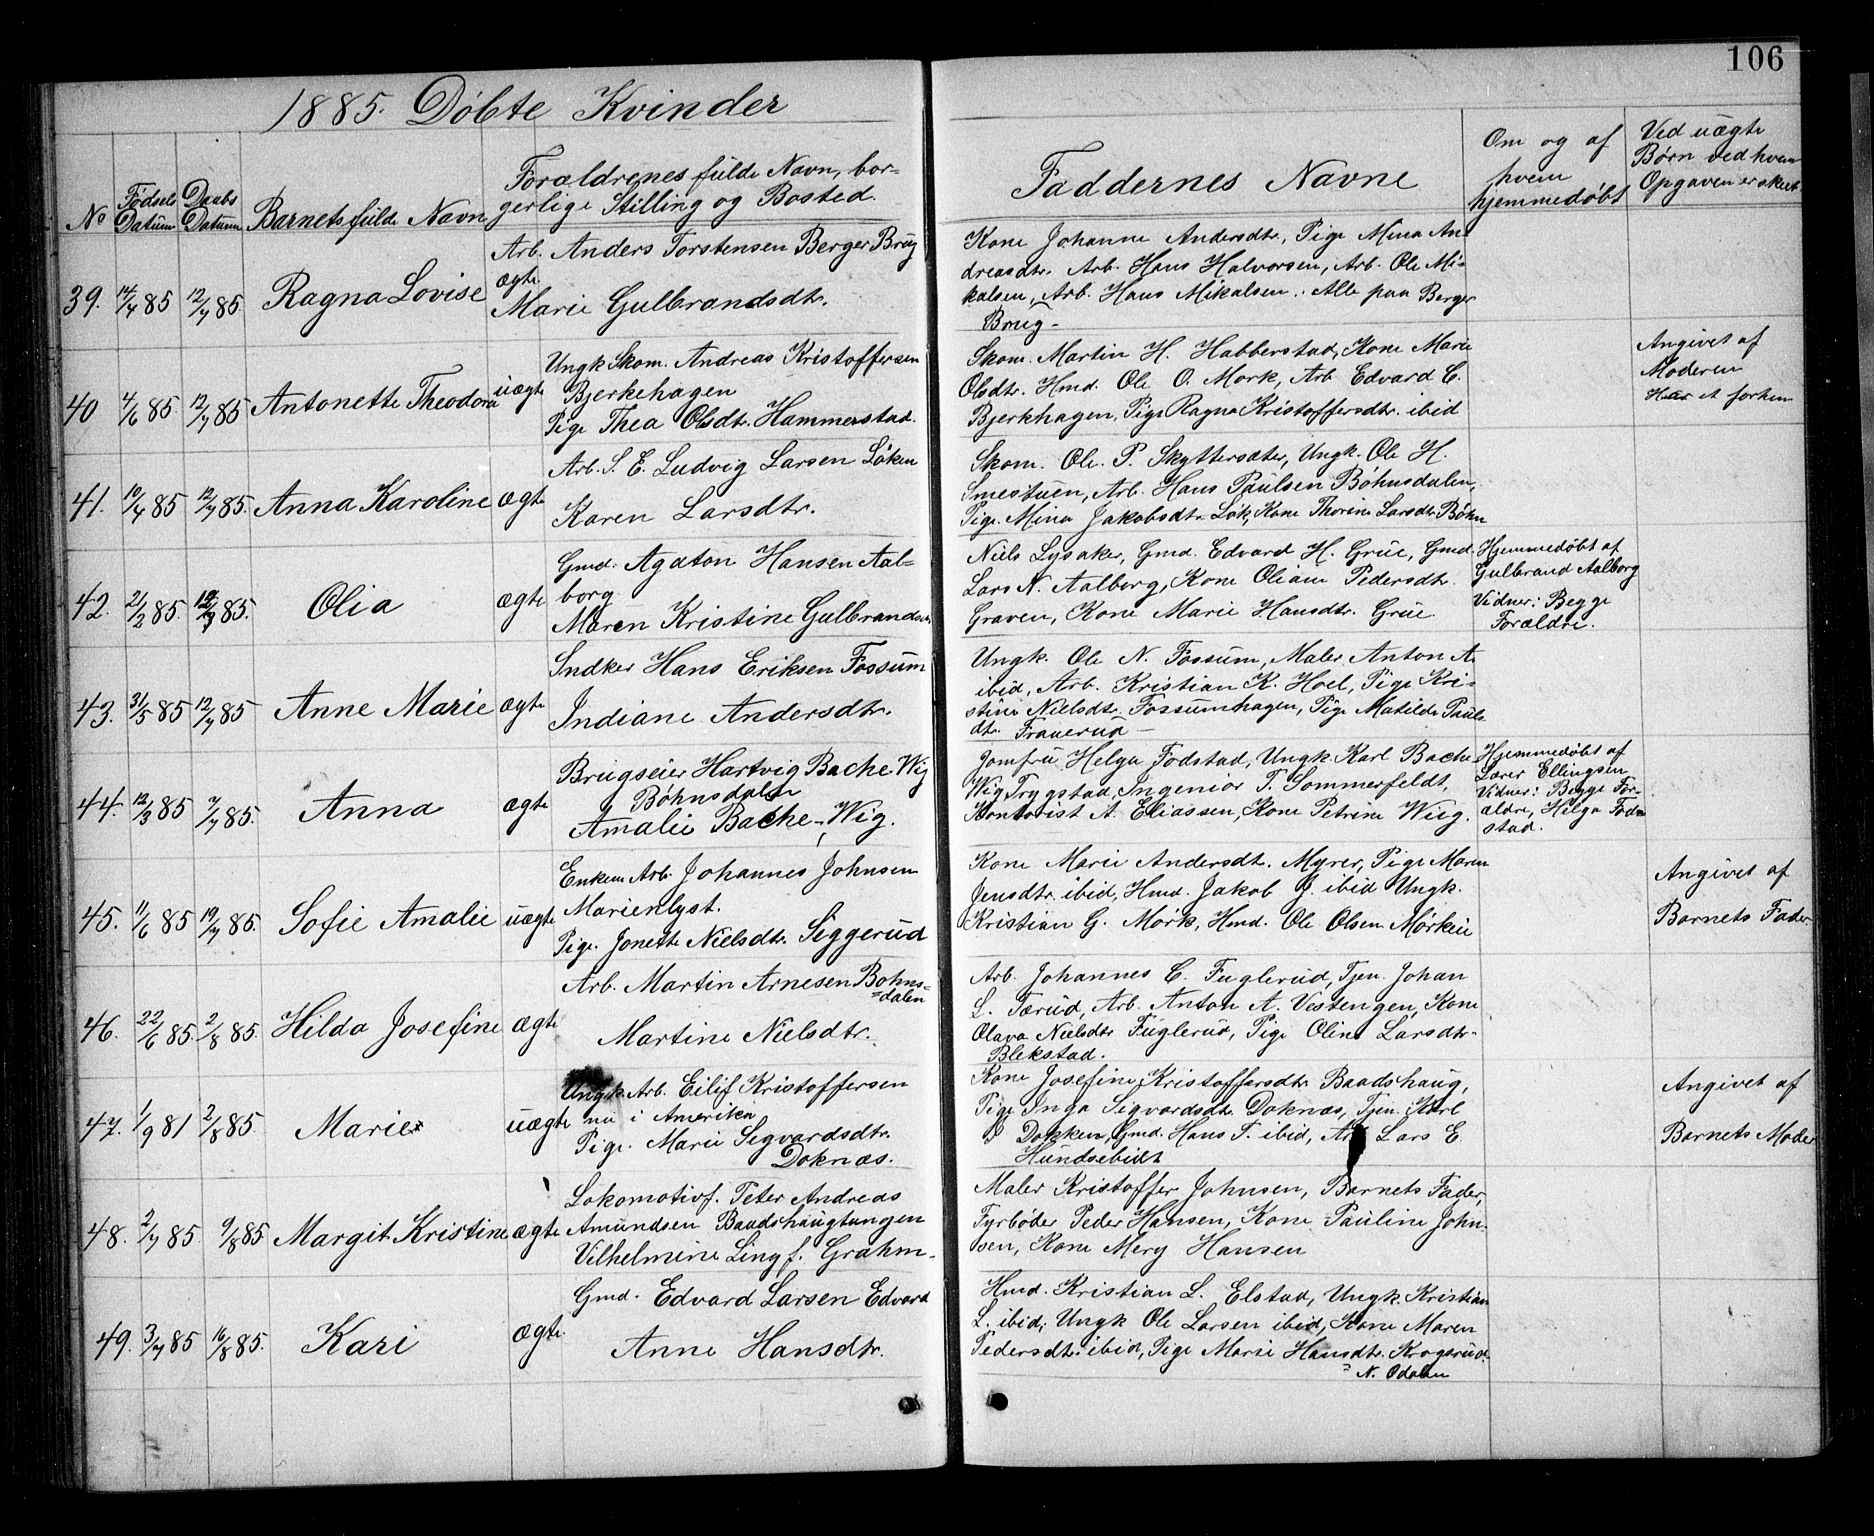 106
1885. Döbte Kvinder
No
Födsels
Datum
Daabs
Datum
Barnets fulde Navn
Forældrenes fulde Navn, bor-
gerlige Stilling og Bosted.
Faddernes Navne
Om og af
hvem
hjemmedöbt
Ved uægte
Børn ved hvem
Opgaven er skeet
39. 14/4 85 12/7 85. Ragna Lovise ægte
Arb. Anders Torstensen Berger Brug
Marie Gulbrandsdtr.
Kone Johanne Andersdtr, Pige Mina An-
dreasdtr. Arb. Hans Halvorsen, Arb. Ole Mi-
kalsen, Arb. Hans Mikalsen. Alle paa Berger
Brug-
40 4/6 85 12/7 85 Antonette Theodora uægte
Ungk Skom. Andreas Kristoffersen
Bjerkehagen
Pige Thea Olsdtr. Hammerstad.
Skom. Martin H. Habberstad, Kone Marie
Olsdtr. Hmd. Ole O. Mork, Arb Edvard C.
Bjerkhagen, Pige Ragna Kristoffersdtr. ibid
Angivet af
Moderen
41. 10/4 85 12/7 85. Anna Karoline ægte
Arb. S. E. Ludvig Larsen Löken
Karen Larsdtr.
Skom. Ole. P. Skyttersæter, Ungk. Ole H.
Smestuen, Arb. Hans Paulsen Böhnsdalen,
Pige. Mina Jakobsdtr. Løk, Kone Thorine Larsdtr. Böhn
42. 21/2 85. 85. Olia ægte
Gmd. Agaton Hansen Aal-
borg
Maren Kristine Gulbrandsen
Niels Lysaker, Gmd. Edvard H. Grüe, Gmd.
Lars N. Aalborg, Kone Oliane Pedersdtr.
Graven, Kone Marie Hansdtr. Grüe
Hjemmedöbt af
Gulbrand Aalborg
Vidner: Begge
Forældre.
43. 31/5 85 12/7 85 Anne Marie ægte
Indker Hans Eriksen Fossum
Indiane Andersdtr.
Ungk. Ole N. Fossum, Maler Anton A.
ibid, Arb. Kristian K. Hoel, Pige Kri-
stine Nielsdtr. Fossumhagen, Pige Matilde Pauls
dtr. Frauerud -
44. 12/3 85 7/7 85. Anna ægte
Brugseier Hartvig Bache-Wig
Böhnsdalen
Amalie Bache-Wig.
Jomfru Helga Fodstad, Ungk. Karl Bache
Wig Trygstad, Ingeniör T. Sommerfeldt,
Kontorist A. Eliassen, Kone Petrine Wiig.
Hjemmedöbt af
Lærer Ellingsen
Vidner: Begge For-
ældre, Helga Fod-
stad.
45. 11/6 85 19/7 85. Sofie Amalie uægte
Enkem. Arb. Johannes Johnsen
Marienlyst.
Pige. Jonette Nielsdtr. Siggerud
Kone Marie Andersdtr. Myrer, Pige Maren
Jensdtr. ibid, Hmd. Jakob J. ibid Ungk.
Kristian G. Mork, Hmd. Ole Olsen Mörkeie
Angivet af
Barnets Fader
46. 22/6 85. 2/8 85. Hilda Josefine ægte
Arb. Martin Arnesen Bohns-
=dalen
Martine Nielsdtr.
Arb. Johannes C. Fuglerud, Tjen. Johan
L. Tærud, Arb. Anton A. Vestengen, Kone
Olava Nielsdtr Fuglerud, Pige Oline Larsdtr.
Blekstad.
47. 1/9 81 2/8 85. Marie uægte
Ungk. Arb. Eilif Kristoffersen
nu i Amerika
Pige. Marie Segvardsdtr.
Doknæs.
Kone Josefine Kristoffersdtr. Baadshaug,
Pige Inga Sigvardsdtr. Doknæs, Tjen. Karl
Dokken, Gmd. Hans T. ibid, Lars E
Hundsebidt
Angivet af
Barnets Moder
48. 2/7 85. 9/8 85 Margit Kristine ægte
Lokomotivf. Peter Andreas
Amundsen Baadshaugtangen
Vilhelmine Ling f. Grahm.
Maler Kristoffer Johnsen, Barnets Fader,
Fyrböder Peder Hansen, Kone Pauline John-
sen, Kone Mery Hansen
49. 3/7 85 16/8 85. Kari ægte.
Gmd. Edvard Larsen Edvard
Anne Hansdtr.
Hmd. Kristian L. Elstad, Ungk. Kristian
L. ibid, Ungk Ole Larsen ibid, Kone Maren
Pedersdtr. ibid, Pige Marie Hansdtr. Krogsrud.
N. Odalen